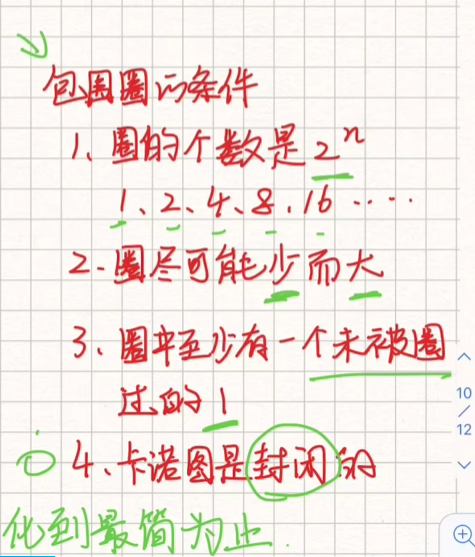 包围圈的条件
1、圈的个数是2ⁿ
1、2、4、8、16 ....
2、圈尽可能少而大
3、圈中至少有一个未被圈
过的1
4、卡诺图是封闭的
化到最简为止.
10
/
12